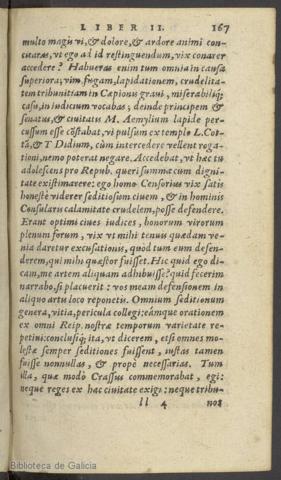 LIBER II. 167
multo magis vi, & dolore, & ardore animi con-
citaras, vt ego ad id restinguendum, vix conarer
accedere? Habueras enim tum omnia in causa
superiora; vim, fugam, lapidationem, crudelita-
tem tribunitiam in Cæpionis graui, miserabiliq́;
casu, in iudicium vocabas; deinde principem &
senatus, & ciuitatis M. Aemylium lapide per-
cussum esse cõstabat, vi pulsum ex templo L. Cot-
tã, & T Didium, cùm intercedere vellent roga-
tioni, nemo poterat negare. Accedebat, vt hæc tu
adolescens pro Repub. queri summa cum digni-
tate existimarere: ego homo Censorius vix satis
honestè viderer seditiosum ciuem, & in hominis
Consularis calamitate crudelem, posse defendere.
Erant optimi ciues iudices, bonorum virorum
plenum forum, vix vt mihi tenuis quædam ve-
nia daretur excusationis, quòd tum eum defen-
derem, qui mihi quæstor fuisset. Hic quid ego di-
cam, me artem aliquam adhibuisse? quid fecerim
narrabo, si placuerit: vos meam defensionem in
aliquo artis loco reponetis. Omnium seditionum
genera, vitia, pericula collegi: eámque orationem
ex omni Reip. nostræ temporum varietate re-
petiui: conclusiq́; ita, vt dicerem, etsi omnes mo-
lestæ semper seditiones fuissent, iustas tamen
fuisse nonnullas, & propè necessarias. Tum
illa, quæ modò Crassus commemorabat, egi:
neque reges ex hac ciuitate exigi: neque tribu-
ll 4 nos
Biblioteca de Galicia